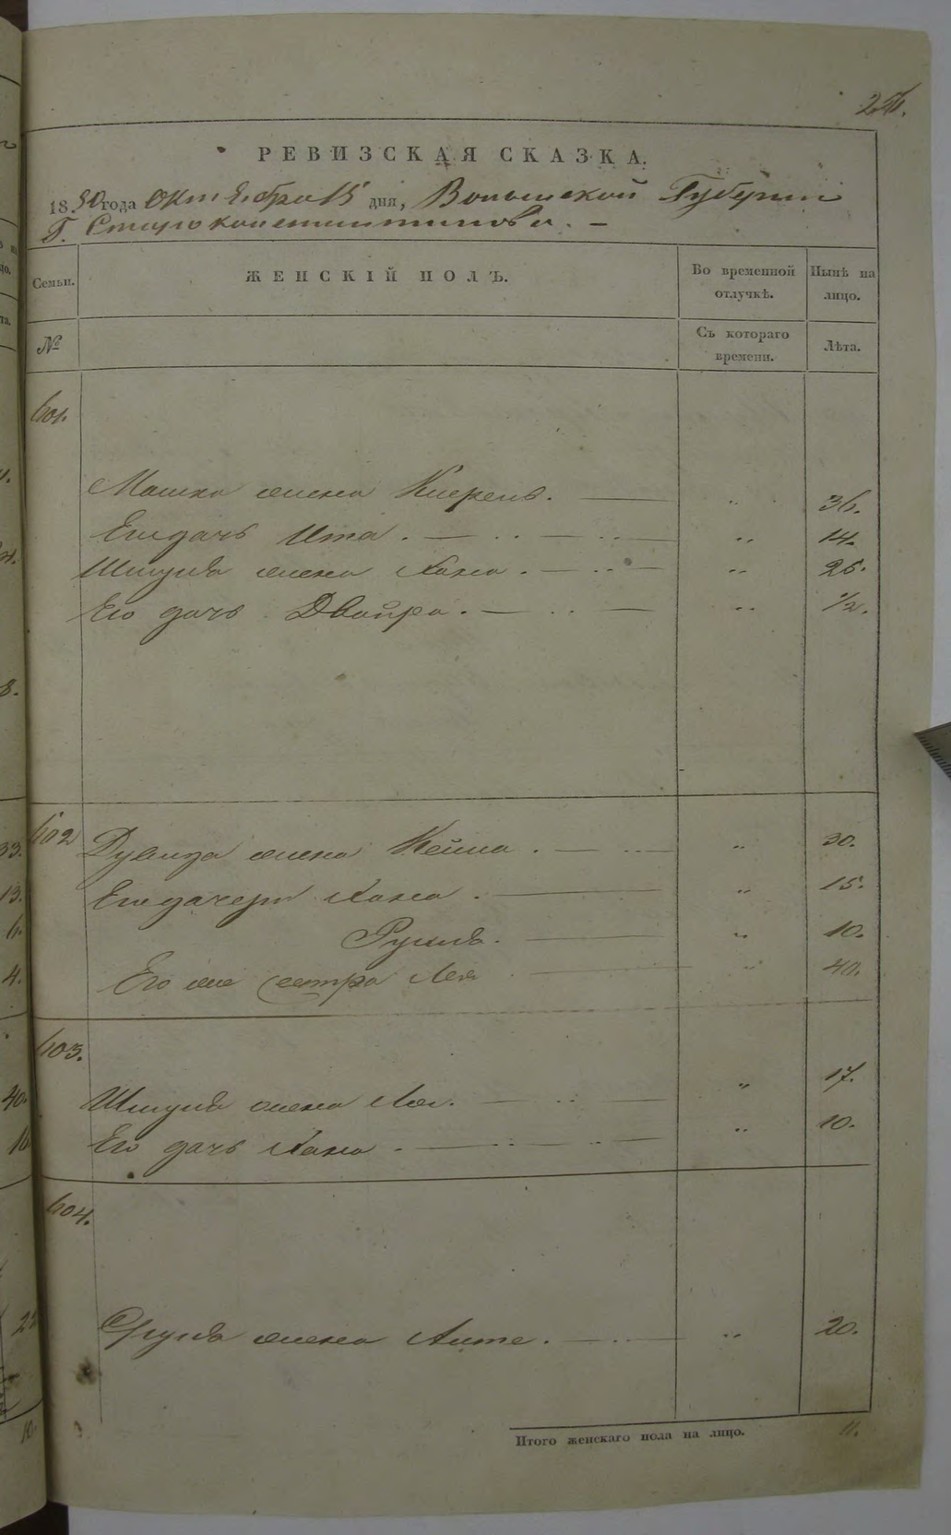 РЕВИЗСКАЯ СКАЗКА.
1850 года октября 15 дня, Волынской Губернии
Г. Староконстантинова. —
Семьи. ЖЕНСКІЙ ПОЛЪ. Во временной отлучкѣ. Нынѣ на лицо.
№ Съ котораго времени. Лѣта.
601.
Мошка жена 36.
Его дочь Ита. 14.
Шмуля жена Хана. 26.
Его дочь Двойра. 1/2.
602
жена Кейла. 30.
Его дочери Хана. 15.
Рухля. 10.
Его же сестра Лея 40.
603.
Шмуля жена Лея. 17.
Его дочь Хана. 10.
604.
Сруля жена 20.
Итого женскаго пола на лицо. 11.
33.
13.
6.
4.
40.